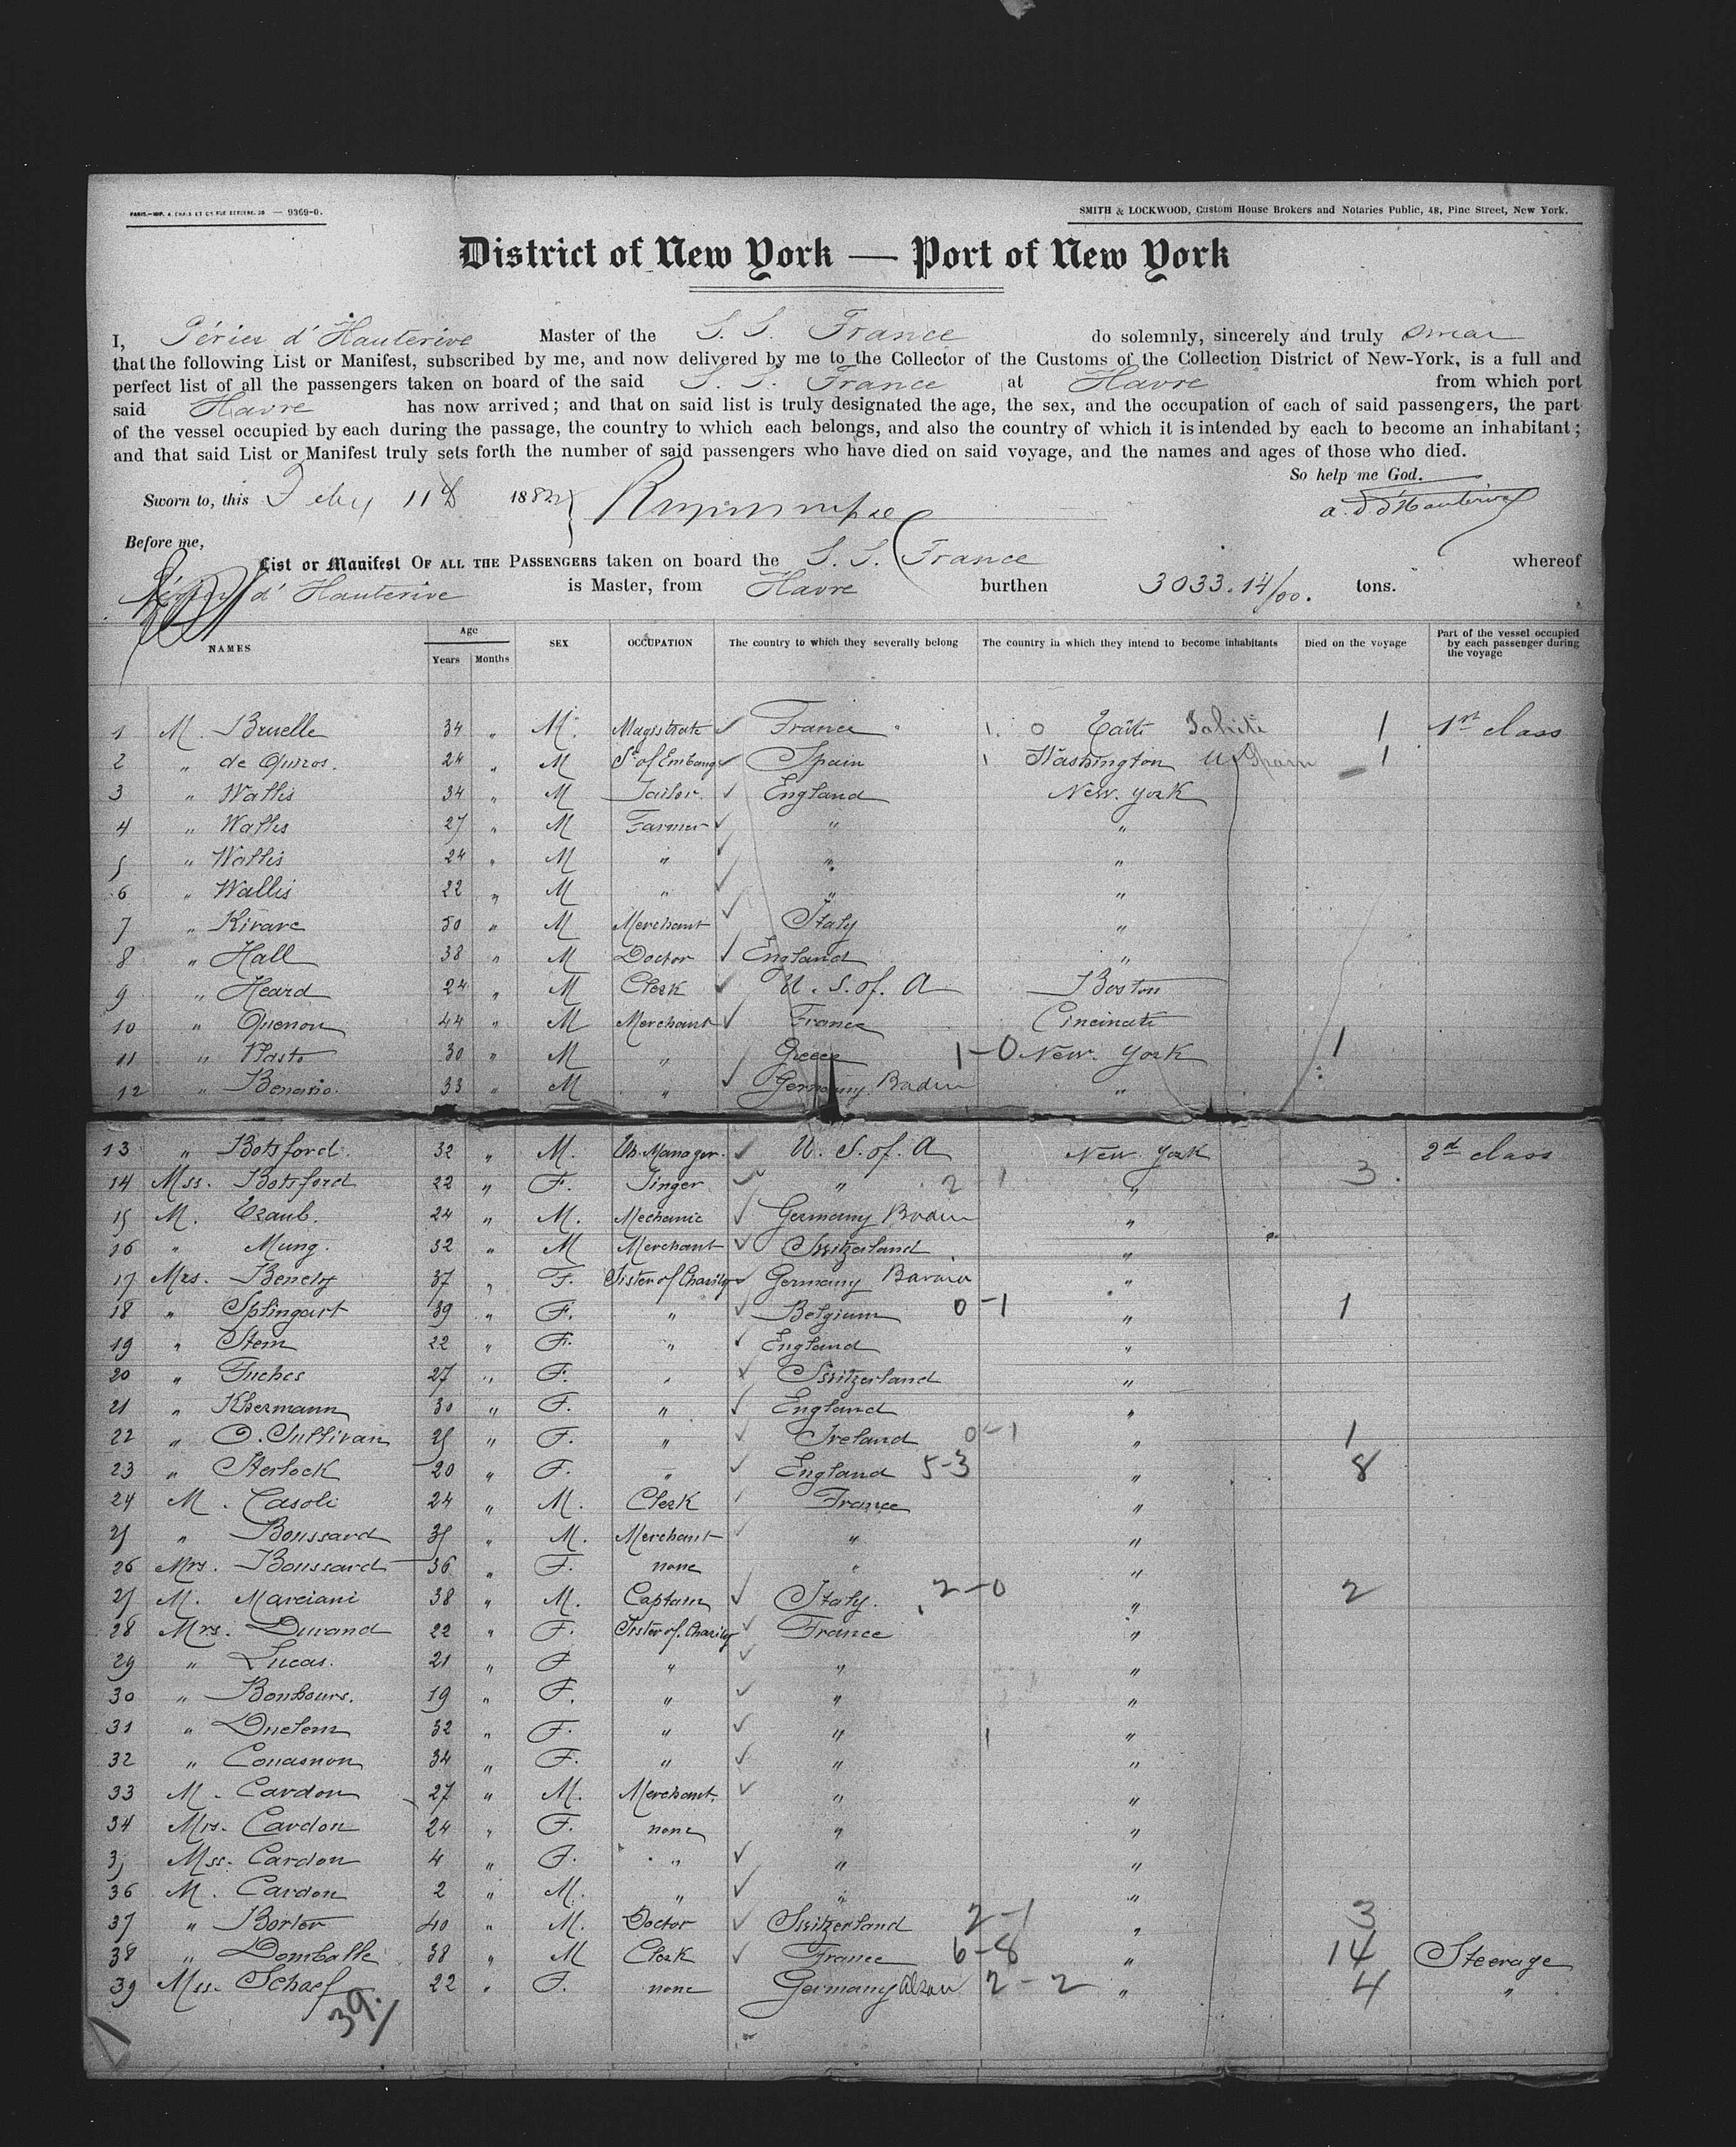 PARIS.—IMP. A. CHAIX ET Cie, RUE BERGÈRE, 20 — 9369-0.
SMITH & LOCKWOOD, Custom House Brokers and Notaries Public, 48, Pine Street, New York.
District of New York — Port of New York
I, Périer d'Hauterive Master of the S. S. France do solemnly, sincerely and truly swear
that the following List or Manifest, subscribed by me, and now delivered by me to the Collector of the Customs of the Collection District of New-York, is a full and
perfect list of all the passengers taken on board of the said S. S. France at Havre from which port
said Havre has now arrived; and that on said list is truly designated the age, the sex, and the occupation of each of said passengers, the part
of the vessel occupied by each during the passage, the country to which each belongs, and also the country of which it is intended by each to become an inhabitant;
and that said List or Manifest truly sets forth the number of said passengers who have died on said voyage, and the names and ages of those who died.
So help me God.
Sworn to, this 11 188
a. d'Hauterive
Before me,
List or Manifest OF ALL THE PASSENGERS taken on board the S. S. France whereof
d'Hauterive is Master, from Havre burthen 3033.14/00. tons.
NAMES Age Years Months SEX OCCUPATION The country to which they severally belong The country in which they intend to become inhabitants Died on the voyage Part of the vessel occupied by each passenger during the voyage
1 M. Bruelle 34 " M. Magistrate ✓ France 1. 0 Taïti Tahiti 1 1st class
2 " de Quiros. 24 " M ✓ Spain 1 Washington Spain 1
3 " Wallis 34 " M Tailor. ✓ England New. York
4 " Wallis 27 " M Farmer ✓ " "
5 " Wallis 24 " M " ✓ " "
6 " Wallis 22 " M " ✓ " "
7 " Kivave 50 " M Merchant ✓ Italy "
8 " Hall 38 " M Doctor ✓ England "
9 " Heard 24 " M Clerk ✓ U. S. of. A Boston
10 " Quenon 44 " M Merchant ✓ France Cincinati
11 " Vlasto 30 " M " ✓ Greece 1-0 New. York 1
12 " Benario. 33 " M " ✓ Germany Baden "
13 " Botsford. 32 " M. Manager. ✓ U. S. of. A New York 2d class
14 Mss. Botsford 22 " F. Singer ✓ " 2 1 " 3
15 M. Traub. 24 " M. Mechanic ✓ Germany Baden "
16 " Mung. 32 " M Merchant ✓ Switzerland "
17 Mrs. Benedy 37 " F. Sister of Charity ✓ Germany Bavaria "
18 " Splingart 39 " F. " ✓ Belgium 0-1 " 1
19 " Stem 22 " F. " ✓ England "
20 " Fuches 27 " F. " ✓ Switzerland "
21 " Khermann 30 " F. " ✓ England "
22 " O. Sullivan 25 " F. " ✓ Ireland 0-1 " 1
23 " Sterlock 20 " F. " ✓ England 5-3 " 8
24 M. Casoli 24 " M. Clerk ✓ France "
25 " Boussard 35 " M. Merchant ✓ " "
26 Mrs. Boussard 36 " F. none " "
27 M. Marciani 38 " M. Captain ✓ Italy. 2-0 " 2
28 Mrs. Durand 22 " F. Sister of. Charity ✓ France "
29 " Lucas. 21 " F " ✓ " "
30 " Bonhours. 19 " F. " ✓ " "
31 " Duclem 32 " F. " ✓ " 1 "
32 " Couasnon 34 " F. " ✓ " "
33 M. Cardon 27 " M. Merchant. ✓ " "
34 Mrs. Cardon 24 " F. none " "
35 Mss. Cardon 4 " F. " ✓ " "
36 M. Cardon 2 " M. " ✓ " "
37 " Borter 40 " M. Doctor ✓ Switzerland 2-1 " 3
38 " Domballe 38 " M Clerk ✓ France 6-8 " 14 Steerage
39 Mss. Schaef 22 " F. none Germany 2-2 " 4 "
39.